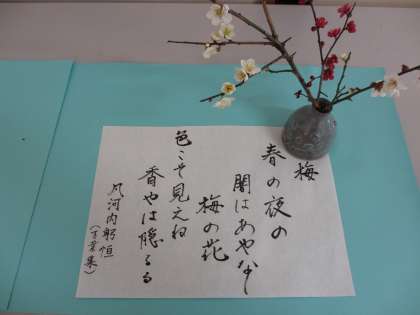 梅
春の夜の
闇はあやなし
梅の花
色こそ見えね
香やは隠るる
凡河内躬恒
(古今集)